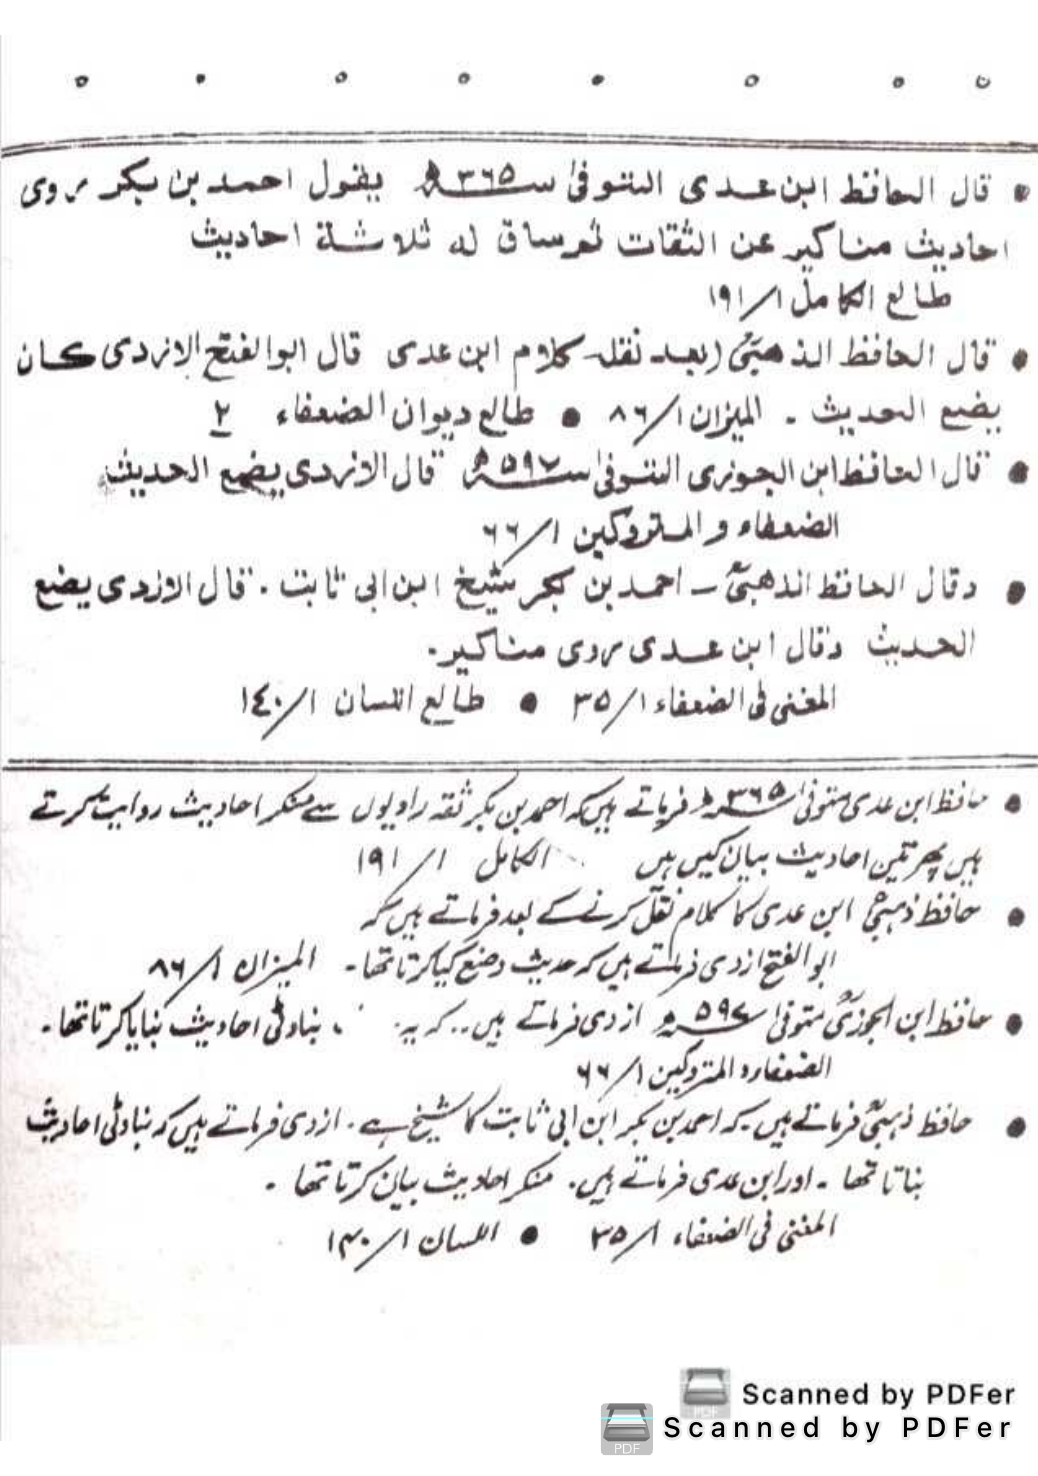 • قال الحافظ ابن عدی المتوفیٰ سنہ ۳۶۵ھ یقول احمد بن بکر یروی
احادیث مناکیر عن الثقات ثم ساق له ثلاثة احادیث
طالع الکامل ۱/۱۹۱
• قال الحافظ الذهبیؒ (بعد نقله کلام ابن عدی قال ابوالفتح الازدی کان
یضع الحدیث ۔ المیزان ۱/۸۶ • طالع دیوان الضعفاء ۲
• قال الحافظ ابن الجوزی المتوفیٰ سنہ ۵۹۷ھ قال الازدی یضع الحدیث
الضعفاء و المتروکین ۱/۶۶
• وقال الحافظ الذهبیؒ ۔ احمد بن بکر شیخ ابن ابی ثابت ۔ قال الازدی یضع
الحدیث وقال ابن عدی یروی مناکیر۔
المغنی فی الضعفاء ۱/۳۵ • طالع اللسان ۱/۱٤۰
• حافظ ابن عدی متوفیٰ سنہ ۳۶۵ھ فرماتے ہیں کہ احمد بن بکر ثقہ راویوں سے منکر احادیث روایت کرتے
ہیں پھر تین احادیث بیان کیں ہیں الکامل ۱/۱۹۱
• حافظ ذہبیؒ ابن عدی کا کلام نقل کرنے کے بعد فرماتے ہیں کہ
ابوالفتح ازدی فرماتے ہیں کہ حدیث وضع کیا کرتا تھا۔ المیزان ۱/۸۶
• حافظ ابن الجوزیؒ متوفیٰ سنہ ۵۹۷ھ ازدی فرماتے ہیں.. کہ یہ بناوٹی احادیث بنایا کرتا تھا۔
الضعفاء و المتروکین ۱/۶۶
• حافظ ذہبیؒ فرماتے ہیں کہ احمد بن بکر ابن ابی ثابت کا شیخ ہے ۔ ازدی فرماتے ہیں کہ بناوٹی احادیث
بناتا تھا ۔ اور ابن عدی فرماتے ہیں۔ منکر احادیث بیان کرتا تھا ۔
المغنی فی الضعفاء ۱/۳۵ • اللسان ۱/۱۴۰
Scanned by PDFer
Scanned by PDFer
PDF